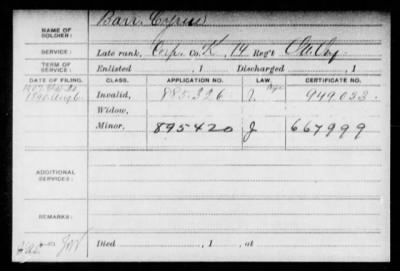 NAME OF SOLDIER: Barr, Cyrus
SERVICE: Late rank, Corp. Co. K, 14 Reg't
TERM OF SERVICE: Enlisted , 1 Discharged , 1
DATE OF FILING. CLASS. APPLICATION NO. LAW. CERTIFICATE NO.
Invalid, 885.326 949.033
1890 Aug 6
Widow,
Minor, 895420 J 667999
ADDITIONAL SERVICES:
REMARKS:
Died , 1 , at